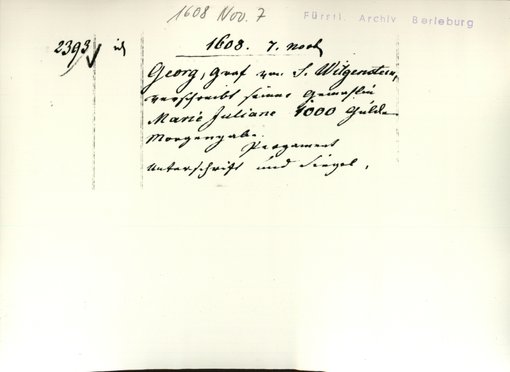 1608 Nov. 7
Fürstl. Archiv Berleburg
2393
1608. 7. Novb
Georg, Graf von S. Witgenstein,
verschreibt seiner Gemahlin
Marie Juliane 1000 Gulden
Morgengabe.
Pergament
Unterschrift und Siegel.